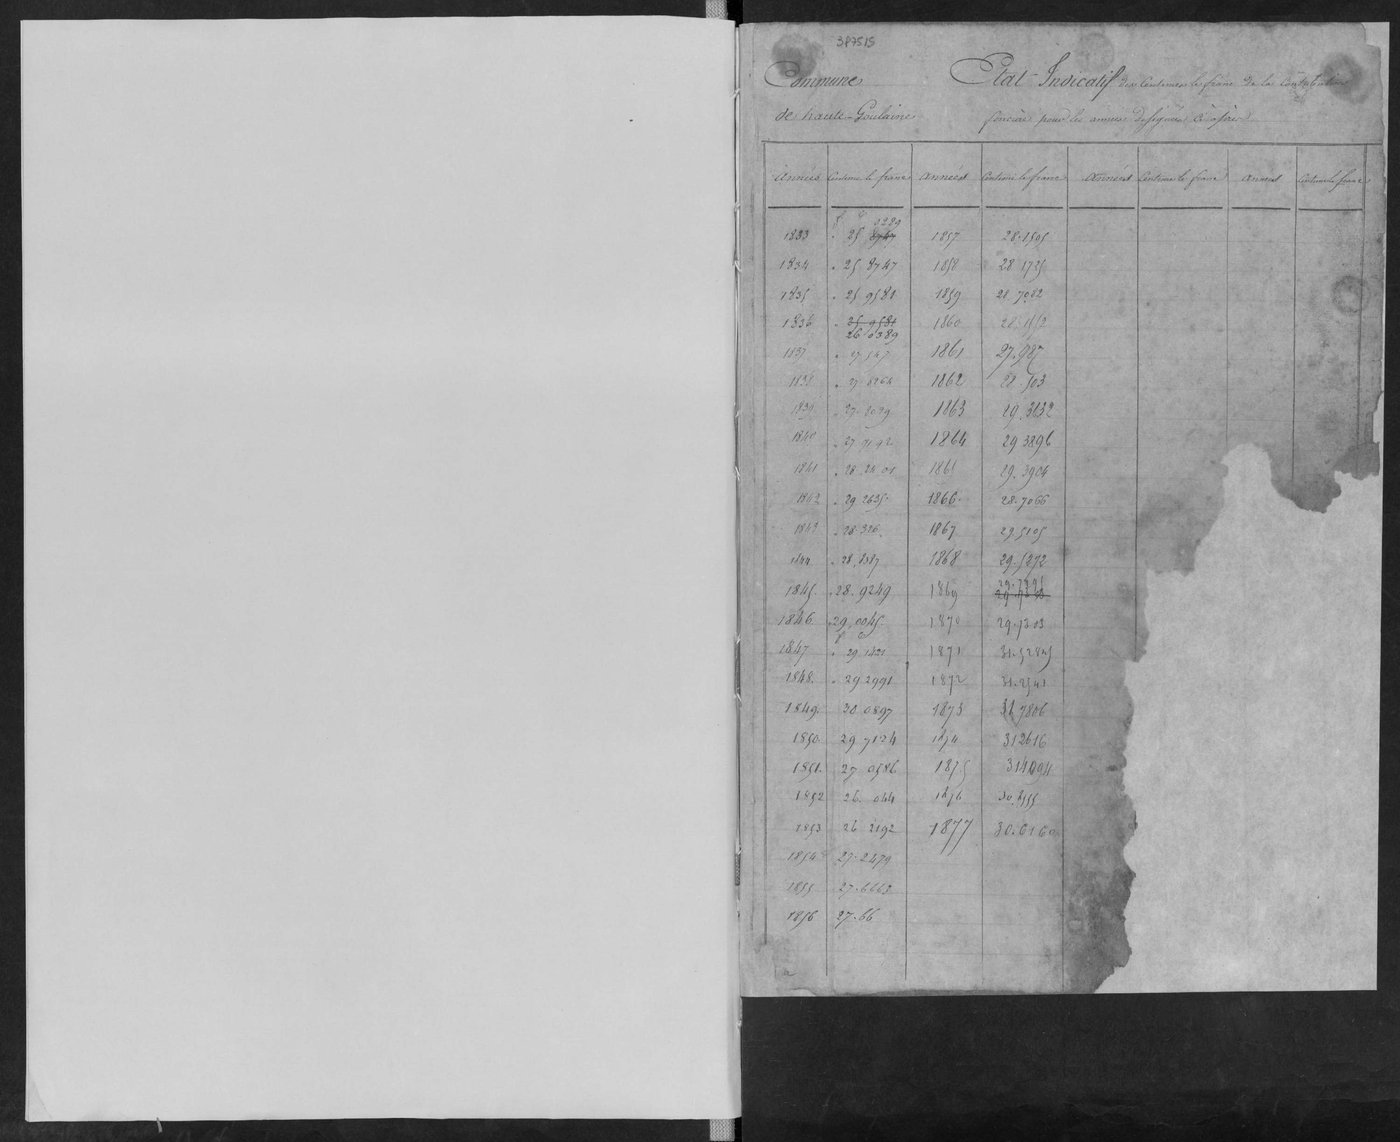 387515
Commune Etat Indicatif des Centimes le franc de la Contribution
de haute-Goulaine foncière pour les années désignées ci-après
Années Centime le franc Années Centime le franc Années Centime le franc Années Centime le franc
1833 25 8289 1857 28.1505
1834 25 8747 1858 28 1725
1835 25 9581 1859 28 7082
1836 25 9581 1860
26 0389
1837 1861 27.987
1838 1862 28 503
1839 1863 29.3832
1840 1864 29 3896
1841 28 24 01 1865 29.3904
1842 29 2635 1866 28.7066
1843 28.326 1867 29.5105
1844 1868 29.5272
1845 28.9249 1869
1846 29.0045 1870 29.7303
1847 29 1421 1871 31.5285
1848 29 2991 1872 31.2541
1849. 30 0897 1873 31.7806
1850. 29 7124 1874 312616
1851. 27 0586 1875 314094
1852 26. 044 1876
1853 26 2192 1877 30.6160
1854 27.2479
1855 27.6663
1856 27.66